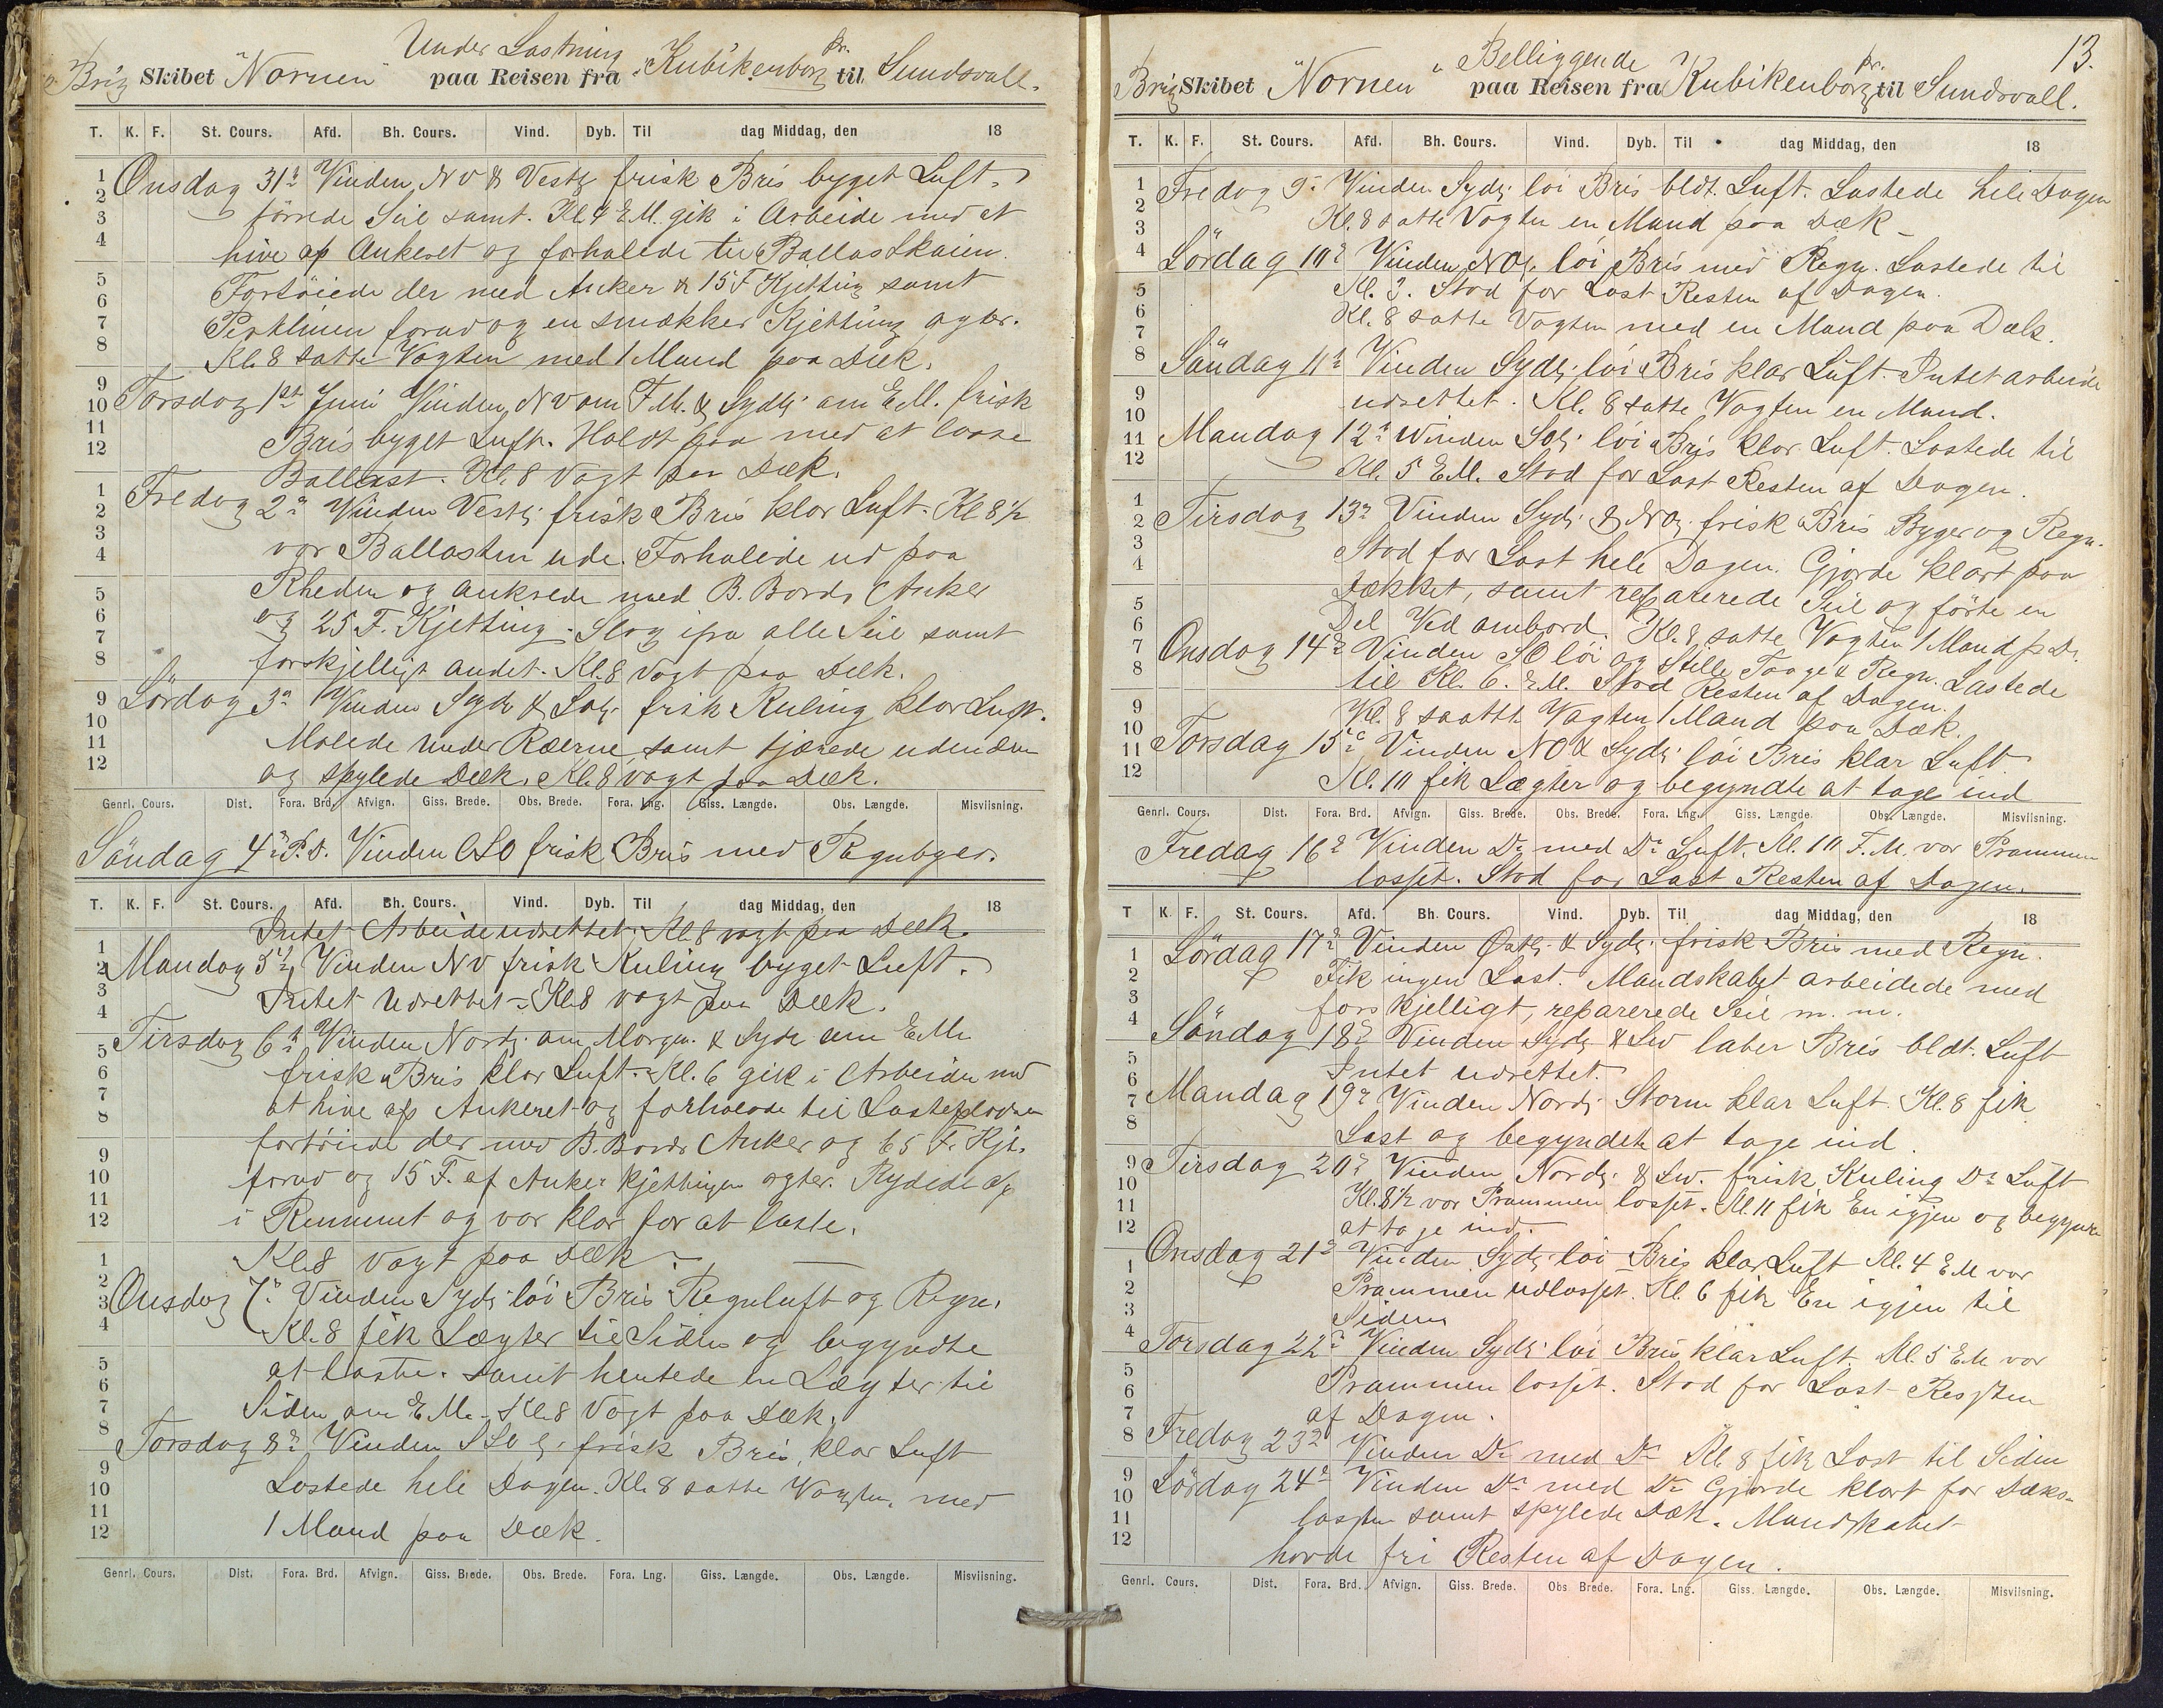 Under Lastning
Brig Skibet "Nornen" paa Reisen fra Kubikenborg pr. til Sundsvall.
T. K. F. St. Cours. Afd. Bh. Cours. Vind. Dyb. Til dag Middag, den 18
Onsdag 31te Vinden NV & Vestl. frisk Bris byget Luft.
törrede Seil samt. Kl. 4 E.M. gik i Arbeide med at
hive op Ankeret og forhalede til Ballastkaien.
Fortöiede der med Anker & 15 F Kjetting samt
Perklinen forud og en smækker Kjetting agter.
Kl. 8 satte Vagten med 1 Mand paa Dæk.
Torsdag 1st Juni Vinden NV om F.M. & Sydl. om E.M. frisk
Bris byget Luft. Holdt paa med at losse
Ballast. Kl. 8 Vagt paa Dæk.
Fredag 2n Vinden Vestl. frisk Bris klar Luft. Kl 8½
var Ballasten ude. Forhalede ud paa
Rheden og ankrede med B. Bords Anker
og 25 F. Kjetting. Slog ifra alle Seil samt
forskjelligt andet. Kl. 8 Vagt paa Dæk.
Lördag 3n Vinden Syd & Sol. frisk Kuling klar Luft.
Malede under Ræerne samt tjærede
og spylede Dæk. Kl. 8 vagt paa Dæk.
Genrl. Cours. Dist. Fora. Brd. Afvign. Giss. Brede. Obs. Brede. Fora. Lng. Giss. Længde. Obs. Længde. Misviisning.
Söndag 4n P.D. Vinden OSO frisk Bris med Regnbyger.
T. K. F. St. Cours. Afd. Bh. Cours. Vind. Dyb. Til dag Middag, den 18
Intet Arbeide udrettet. Kl 8 vagt paa Dæk.
Mandag 5te Vinden NV frisk Kuling byget Luft.
Intet udrettet. Kl 8 vagt paa Dæk.
Tirsdag 6te Vinden Nordl. om Morgn. & Syd om E.M.
frisk Bris klar Luft. Kl. 6 gik i Arbeide med
at hive op Ankeret og forhalede til Lastepladsen
fortöiede der med B. Bords Anker og 65 F. Kjt.
forud og 15 F. af Anker kjettingen agter. Rydede op
i Rummet og var klar for at laste.
Kl. 8 Vagt paa Dæk.
Onsdag 7n Vinden Sydl. löi Bris Regnluft og Regn.
Kl. 8 fik Lægter til Siden og begyndte
at laste. samt hentede en Lægter til
Siden om E.M. Kl. 8 Vagt paa Dæk.
Torsdag 8n Vinden SSO l. frisk Bris, klar Luft
Lastede hele Dagen. Kl. 8 satte Vagten med
1 Mand paa Dæk.
Genrl. Cours. Dist. Fora. Brd. Afvign. Giss. Brede. Obs. Brede. Fora. Lng. Giss. Længde. Obs. Længde. Misviisning.
13.
Belliggende
Brig Skibet "Nornen" paa Reisen fra Kubikenborg pr. til Sundsvall.
T. K. F. St. Cours. Afd. Bh. Cours. Vind. Dyb. Til dag Middag, den 18
Fredag 9n Vinden Sydl. löi Bris bldt. Luft. Lastede hele Dagen
Kl. 8 satte Vagten en Mand paa Dæk
Lördag 10n Vinden NOl. löi Bris med Regn. Lastede til
Kl. 3. Stod for Last Resten af Dagen.
Kl. 8 satte Vagten med en Mand paa Dæk.
Söndag 11te Vinden Sydl. löi Bris klar Luft. Intet arbeide
udrettet. Kl. 8 satte Vagten en Mand.
Mandag 12n Winden Sol. löi Bris klar Luft. Lastede til
Kl. 5 E.M. Stod for Last Resten af Dagen.
Tirsdag 13n Vinden Sydl. & NOl. frisk Bris Byger og Regn.
Stod for Last hele Dagen. Gjorde klart paa
Dækket, samt reparerede Seil og förte en
Del Ved ombord. Kl. 8 satte Vagten 1 Mand p Dk.
Onsdag 14n Vinden SO löi og Stille Taage & Regn. Lastede
til Kl. 6. E.M. Stod Resten af Dagen.
Kl. 8 saatte Vagten 1 Mand paa Dæk.
Torsdag 15n Vinden NO & Sydl. löi Bris klar Luft
Kl. 10 fik Lægter og begyndte at tage ind
Genrl. Cours. Dist. Fora. Brd. Afvign. Giss. Brede. Obs. Brede. Fora. Lng. Giss. Længde. Obs. Længde. Misviisning.
Fredag 16n Vinden Do med Do Luft. Kl. 10 F.M. var Prammen
losset. Stod for Last Resten af Dagen.
T K. F. St. Cours. Afd. Bh. Cours. Vind. Dyb. Til dag Middag, den 18
Lördag 17n Vinden Östl. & Sydl. frisk Bris med Regn.
Fik ingen Last. Mandskabet arbeidede med
forskjelligt, reparerede Seil m. m.
Söndag 18n Vinden Sydl & Sw laber Bris bldt. Luft
Intet udrettet.
Mandag 19n Vinden Nordl. Storm klar Luft. Kl. 8 fik
Last og begyndte at tage ind
Tirsdag 20n Vinden Nordl. & Sw. frisk Kuling Do Luft
Kl. 8½ var Prammen losset. Kl 11 fik En igjen og begynte
at tage ind.
Onsdag 21n Vinden Sydl. löi Bris klar Luft Kl. 4 E.M var
Prammen udlosset. Kl. 6 fik En igjen til
Siden
Torsdag 22n Vinden Sydl. löi Bris klar Luft. Kl. 5 E.M var
Prammen losset. Stod for Last Resten
af Dagen.
Fredag 23n Vinden Do med Do Kl 8 fik Last til Siden
Lördag 24n Vinden Do med Do Gjorde klart for Dæks-
lasten samt spylede Dæk. Mandskabet
havde fri Resten af Dagen.
Genrl. Cours. Dist. Fora. Brd. Afvign. Giss. Brede. Obs Brede. Fora. Lng. Giss. Længde. Obs. Længde. Misviisning.